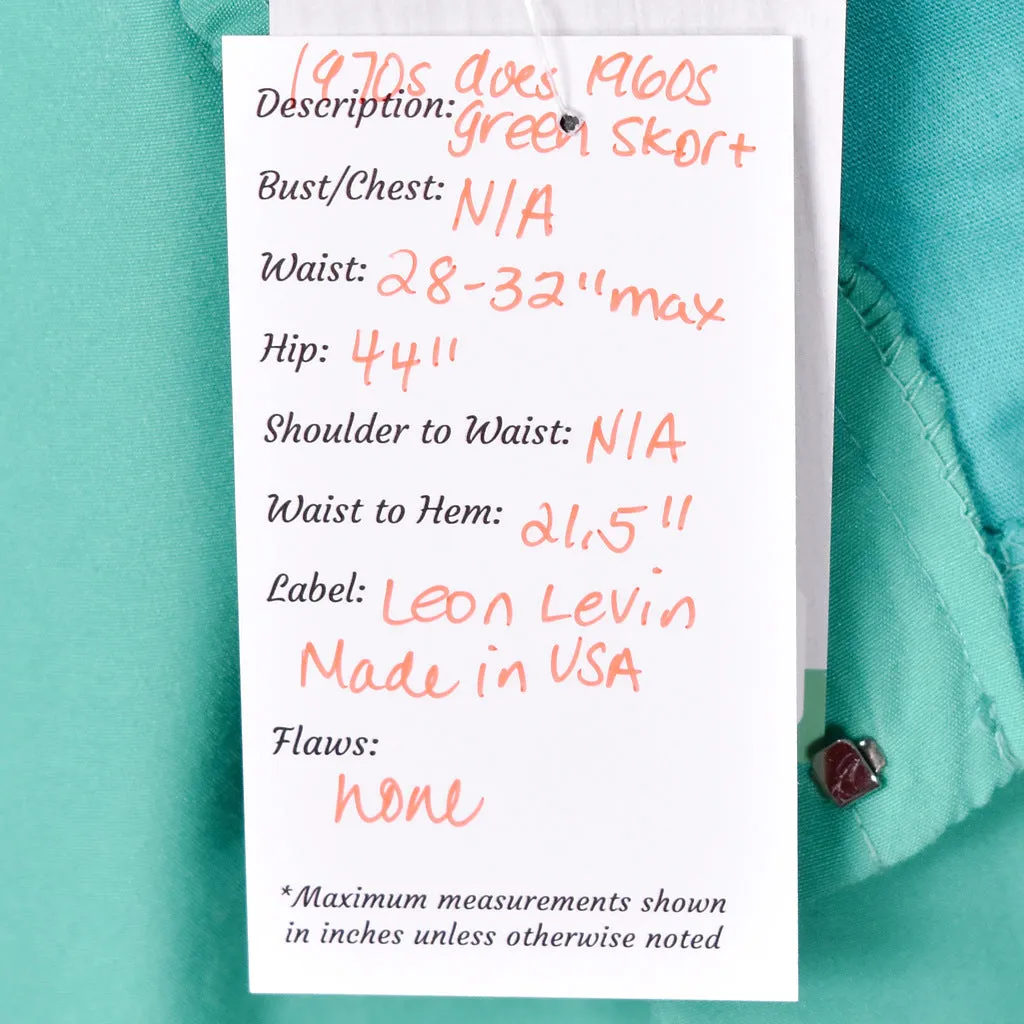 1970s does 1960s
Description: green skort
Bust/Chest: N/A
Waist: 28-32" max
Hip: 44"
Shoulder to Waist: N/A
Waist to Hem: 21.5"
Label: Leon Levin
Made in USA
Flaws:
none
*Maximum measurements shown
in inches unless otherwise noted